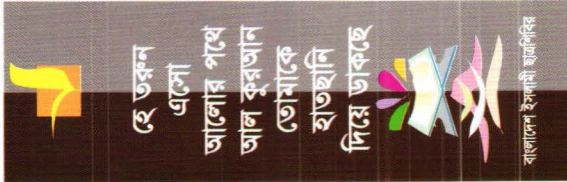 হে তরুন
এসো
আলোর পথে
আল কুরআন
তোমাকে
হাতছানি
দিয়ে ডাকছে
বাংলাদেশ ইসলামী ছাত্রশিবির